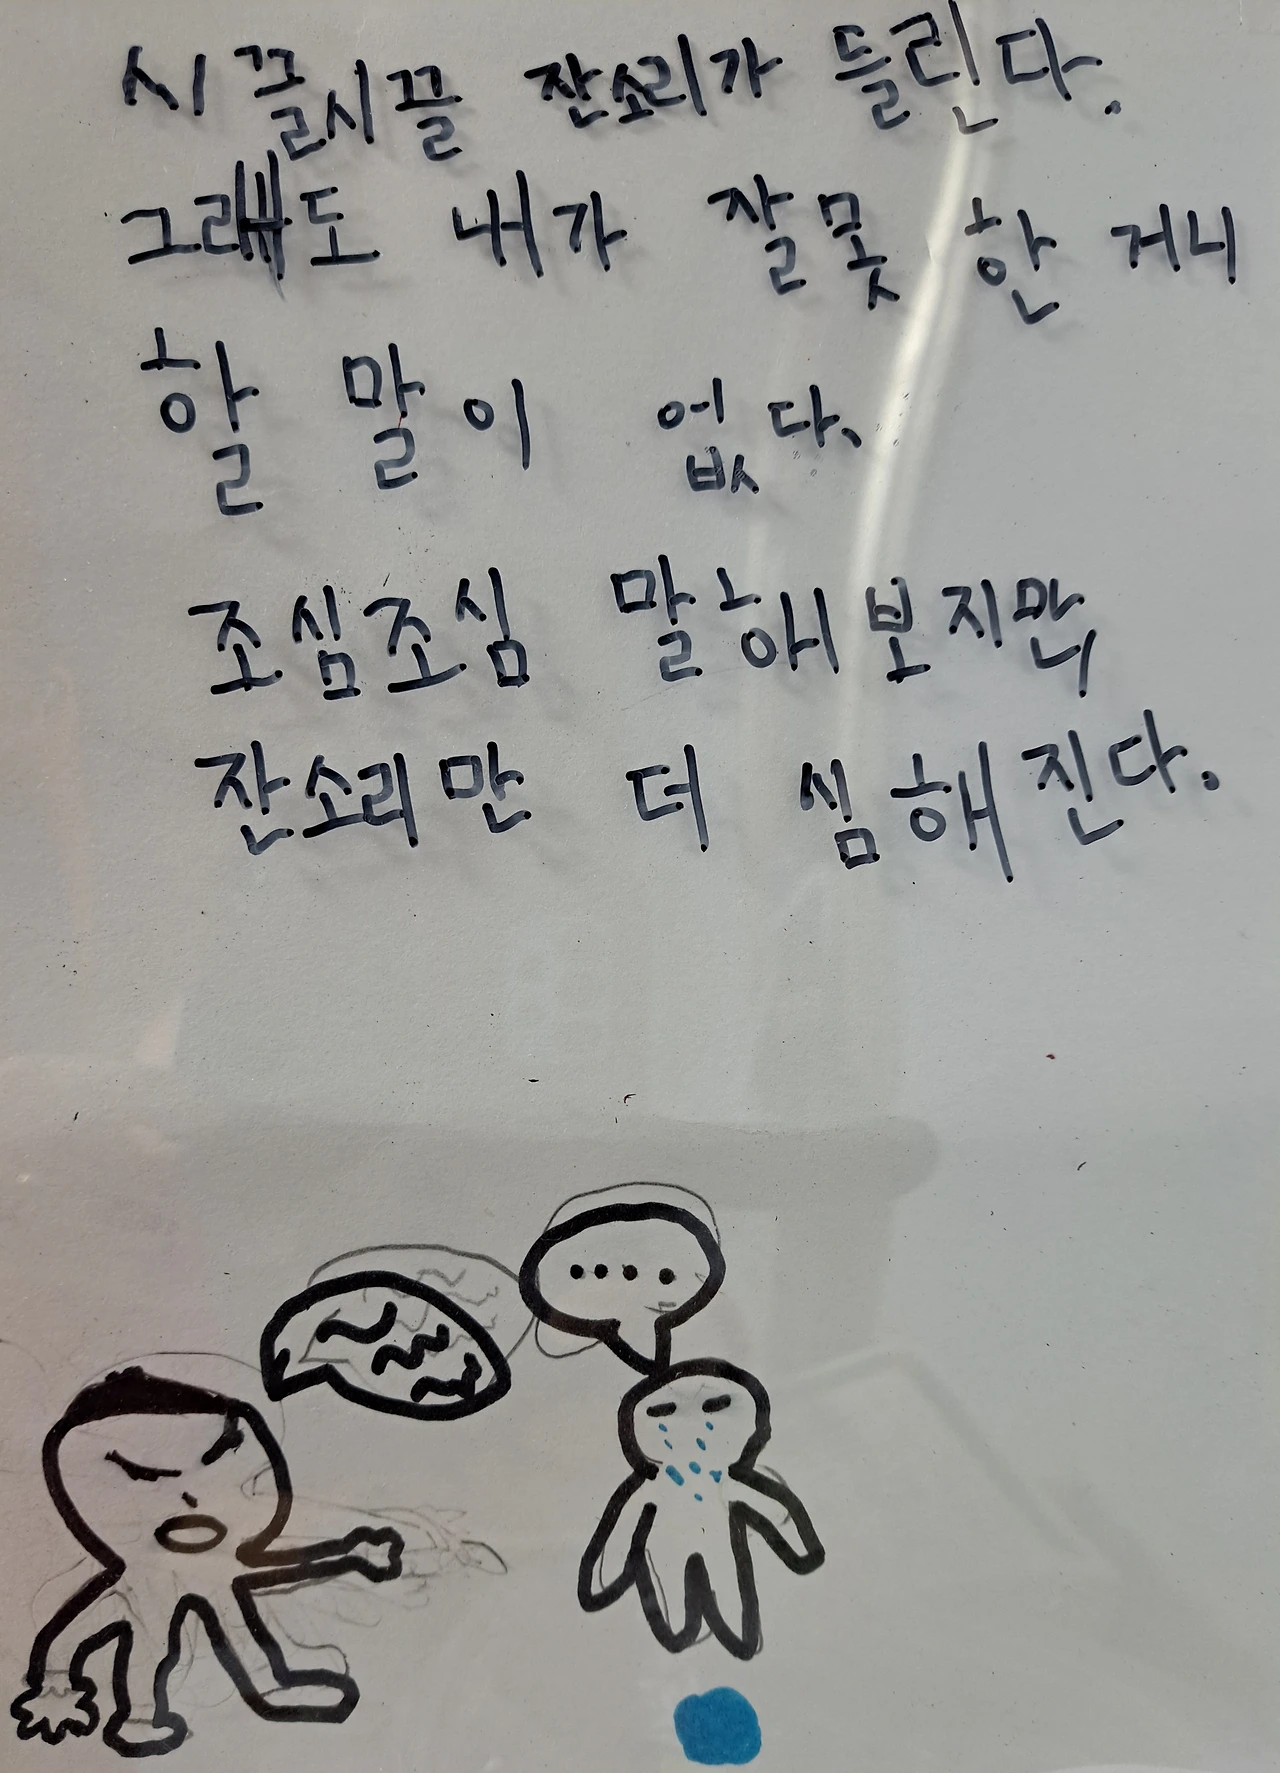 시끌시끌 잔소리가 들린다.
그래도 내가 잘못 한 거니
할 말이 없다.
조심조심 말해보지만
잔소리만 더 심해진다.
....